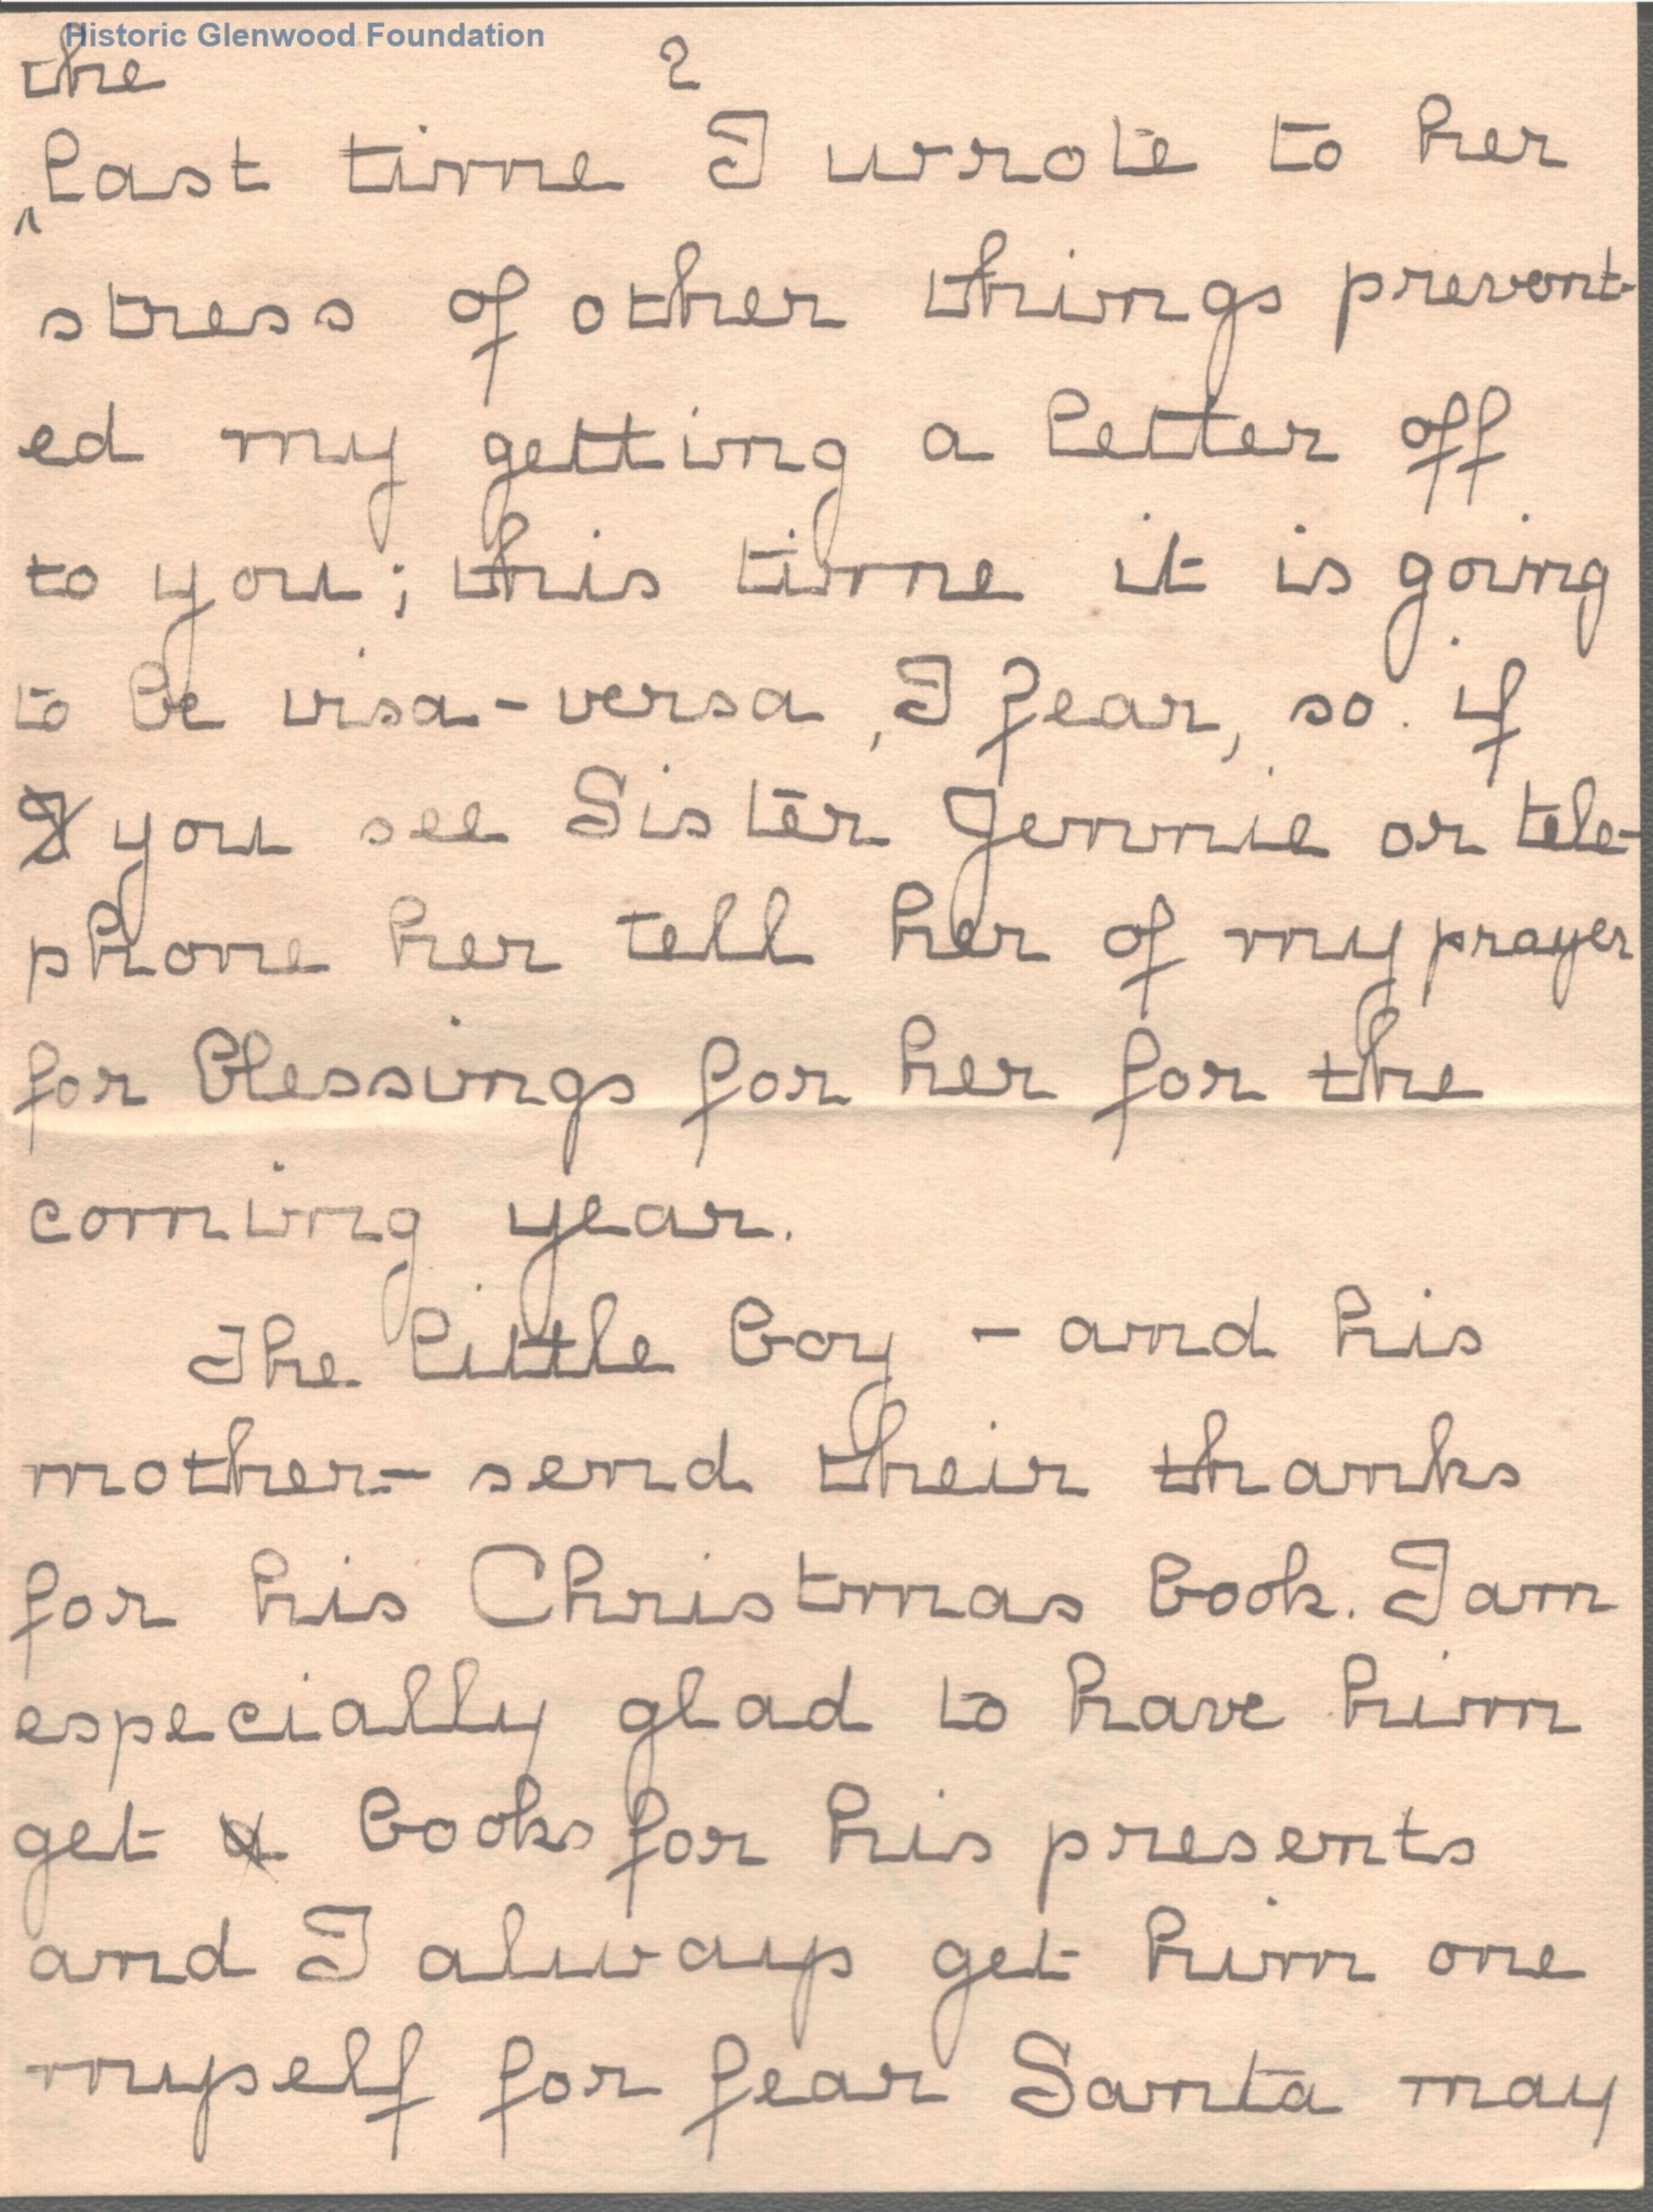 Historic Glenwood Foundation
the 2
last time I wrote to her
stress of other things prevent-
ed my getting a letter off
to you; this time it is going
to be visa-versa, I fear, so if
I you see Sister Jennie or tele-
phone her tell her of my prayer
for blessings for her for the
coming year.
The little boy - and his
mother - send their thanks
for his Christmas book. I am
especially glad to have him
get a books for his presents
and I always get him one
myself for fear Santa may